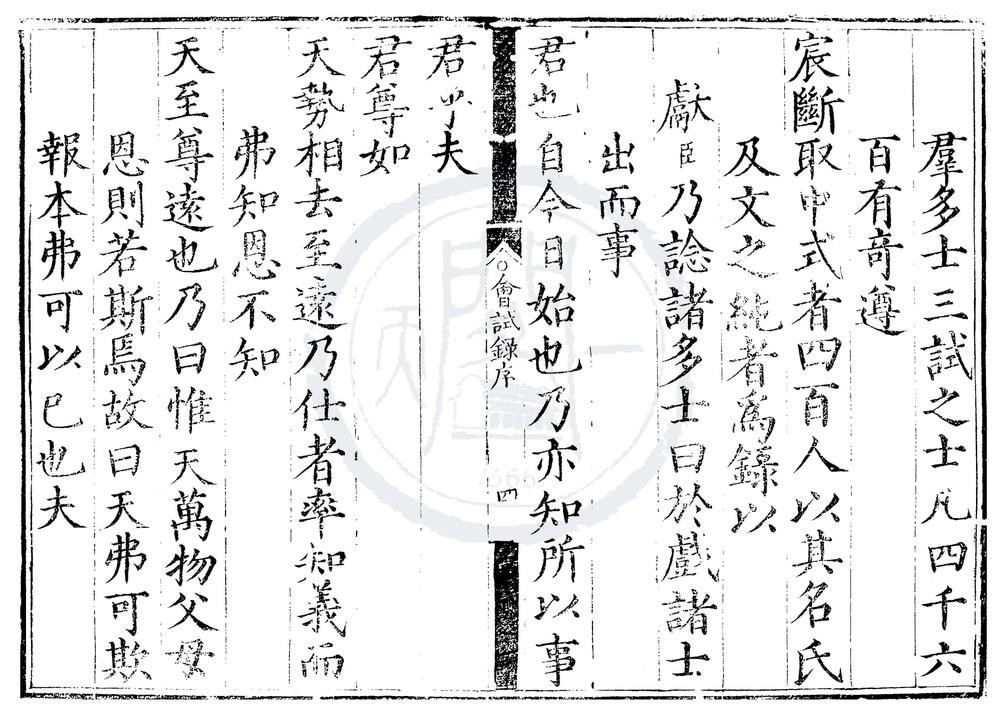 羣多士三試之士凡四千六
百有竒遵
宸斷取中式者四百人以其名氏
及文之純者爲錄以
獻臣乃諗諸多士曰於戲諸士
出而事
君也自今日始也乃亦知所以事
會試錄序
四
君乎夫
君尊如
天勢相去至遠乃仕者率知義而
弗知恩不知
天至尊遠也乃曰惟天萬物父母
恩則若斯焉故曰天弗可欺
報本弗可以已也夫